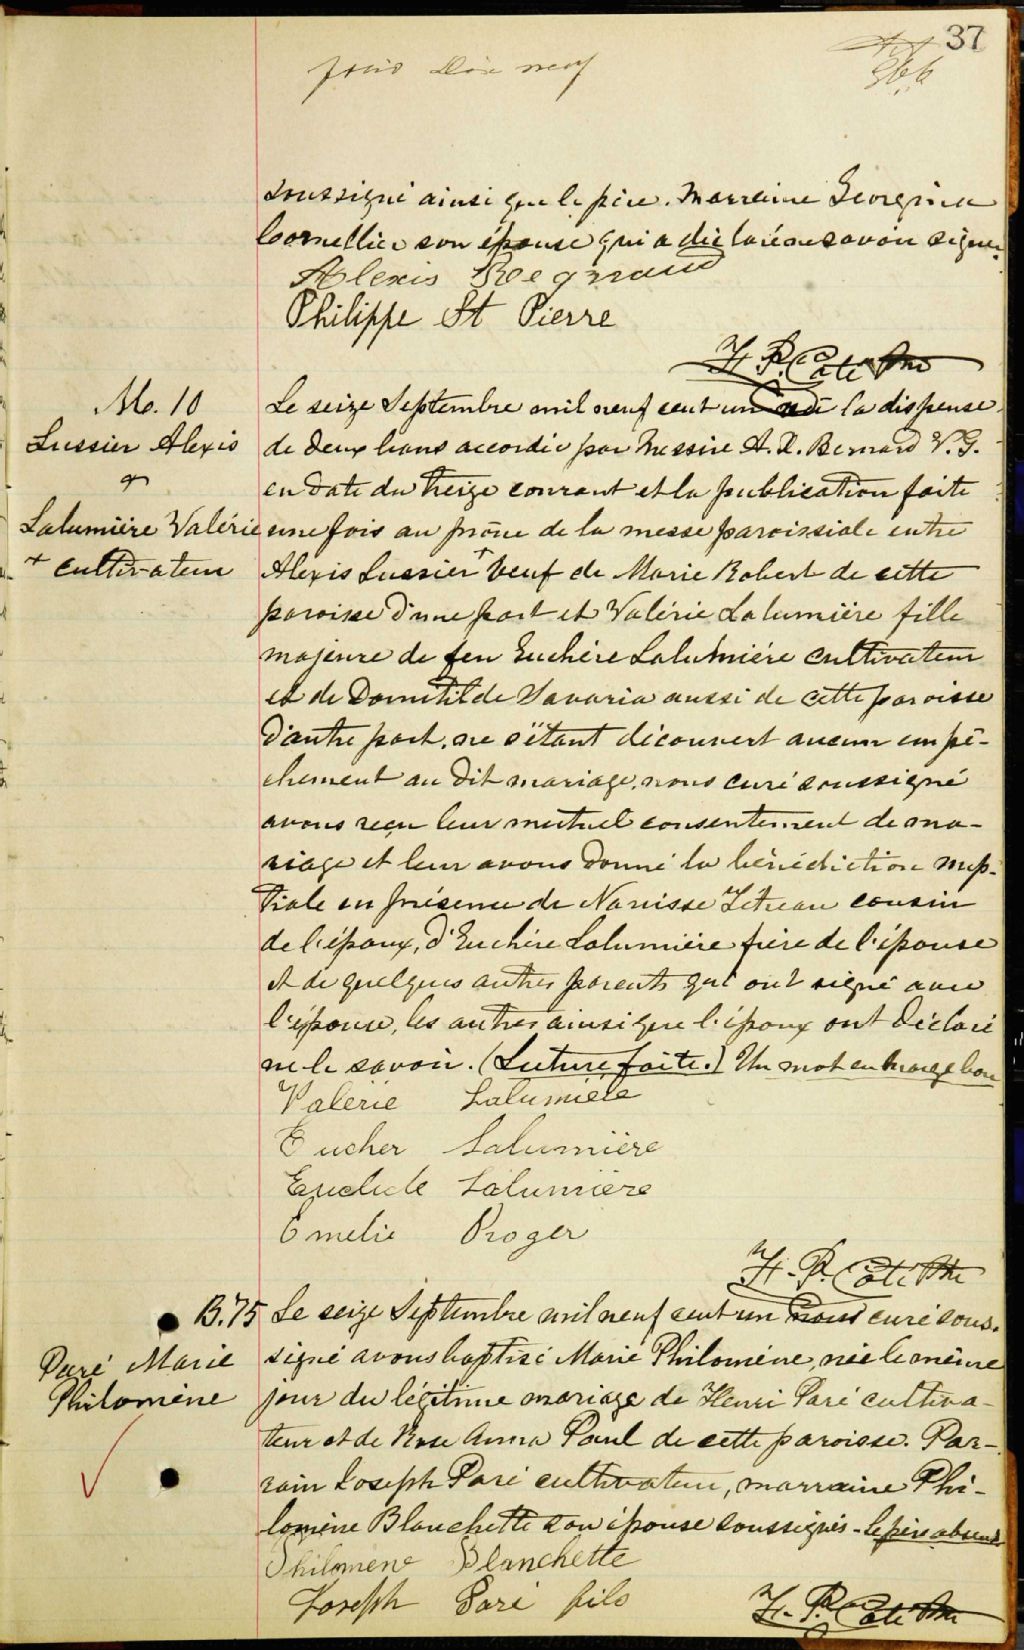 37
folio dix neuf
soussigné ainsi que le père. Marraine Georgina
Cornellier son épouse qui a déclaré ne savoir signer.
Alexis Regnaud
Philippe St Pierre
F. P. Côté Ptre
M. 10
Lussier Alexis
&
Lalumière Valérie
+ cultivateur
Le seize Septembre mil neuf cent un vu la dispense
de deux bans accordée par Messire A. X. Bernard V.G.
en date du treize courant et la publication faite
une fois au prône de la messe paroissiale entre
Alexis Lussier + veuf de Marie Robert de cette
paroisse d'une part et Valérie Lalumière fille
majeure de feu Euchère Lalumière cultivateur
et de Domitilde Savaria aussi de cette paroisse
d'autre part, ne s'étant découvert aucun empê-
chement au dit mariage, nous curé soussigné
avons reçu leur mutuel consentement de ma-
riage et leur avons donné la bénédiction nup-
tiale en présence de Narcisse Tétreau cousin
de l'époux, d'Euchère Lalumière frère de l'épouse
et de quelques autres parents qui ont signé avec
l'épouse, les autres ainsi que l'époux ont déclaré
ne le savoir. (Lecture faite.) Un mot en marge bon
Valérie Lalumière
Eucher Lalumière
Euclide Lalumière
Emelie Roger
F. P. Côté Ptre
B. 75
Paré Marie
Philomène
Le seize Septembre mil neuf cent un nous curé sous-
signé avons baptisé Marie Philomène, née le même
jour du légitime mariage de Henri Paré cultiva-
teur et de Rose Anna Paul de cette paroisse. Par-
rain Joseph Paré cultivateur, marraine Phi-
lomène Blanchette son épouse soussignés - le père absent
Philomène Blanchette
Joseph Paré fils
F. P. Côté Ptre